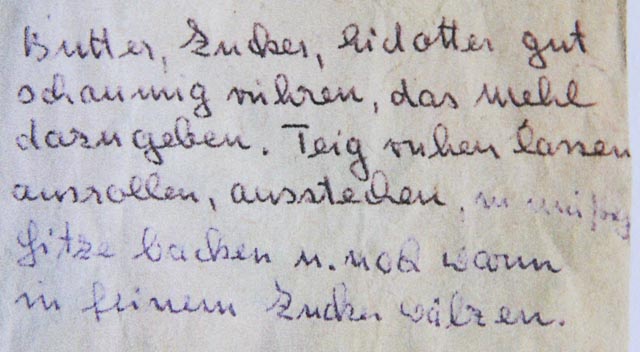 Butter, Zucker, Eidotter gut
schaumig rühren, das Mehl
dazugeben. Teig ruhen lassen
ausrollen, ausstechen, in mäßig
Hitze backen u. noch warm
in feinem Zucker wälzen.